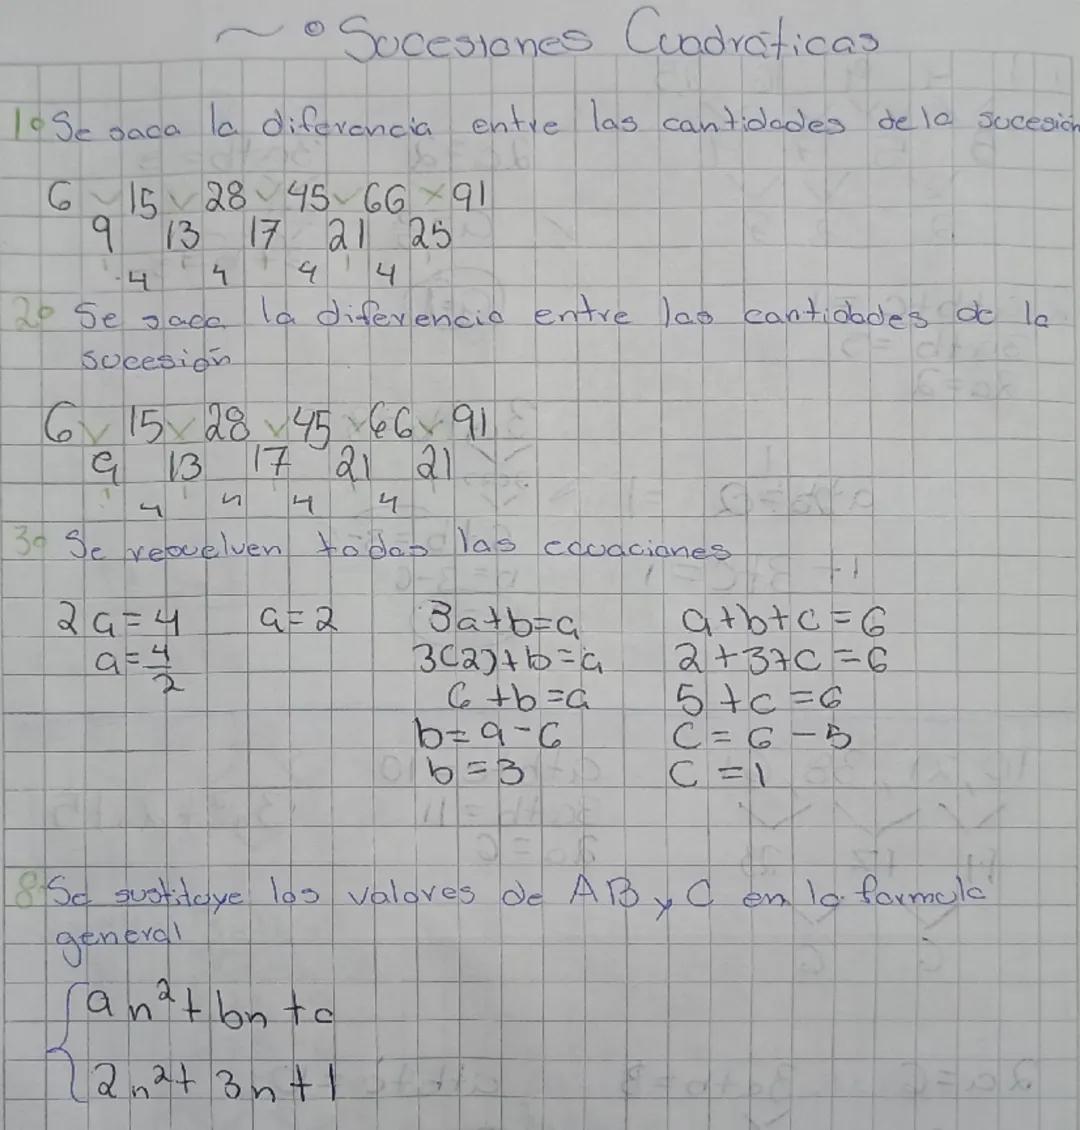 Sucesiones Cuadráticas
1º Se saca la diferencia entre las cantidades de la sucesión
6 15 28 45 66 91
9 13 17 21 25
4 4 4 4
2º Se saca la diferencia entre las cantidades de la
sucesión
6 15 28 45 66 91
9 13 17 21 21
4 4 4 4
3º Se resuelven todas las ecuaciones
2a=4 a=2 3a+b=9 a+b+c=6
a=4/2 3(2)+b=9 2+3+c=6
6+b=9 5+c=6
b=9-6 c=6-5
b=3 c=1
8 Se sustituye los valores de A B y C en la formula
general
an²+bn+c
2n²+3n+1